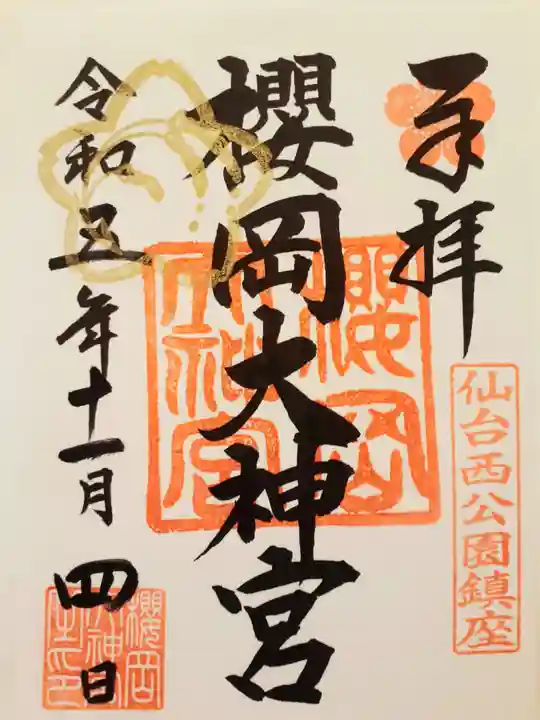 奉拝
仙台西公園鎮座
櫻岡大神宮
櫻岡大神宮
令和五年十一月四日
櫻岡大神宮之印